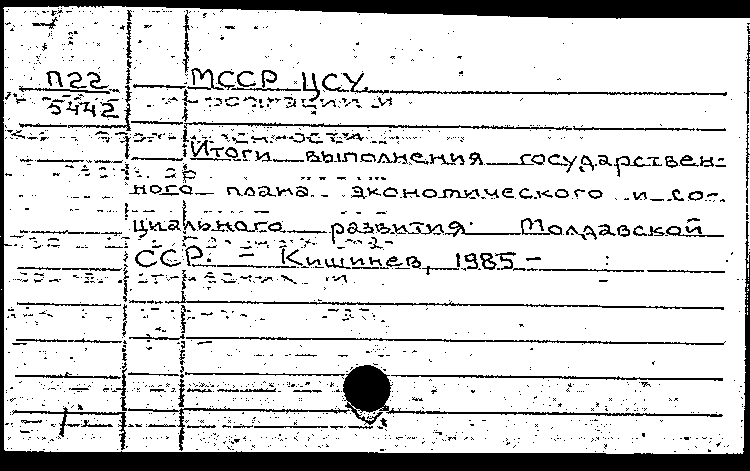 П22 МССР ЦСУ.
5442
Итоги выполнения государствен-
ного плана экономического и со-
циального развития Молдавской
ССР. – Кишинев, 1985 –